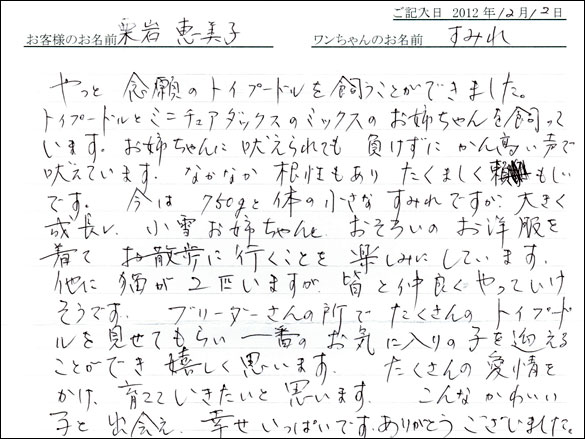 ご記入日 2012年12月12日
お客様のお名前 栗岩 恵美子 ワンちゃんのお名前 すみれ
やっと 念願のトイプードルを飼うことができました。
トイプードルとミニチュアダックスのミックスのお姉ちゃんを飼って
います。お姉ちゃんに吠えられても 負けずに かん高い声で
吠えています。なかなか 根性もあり たくましく もしい
です。 今は 750gと体の小さな すみれですが、大きく
成長し、小雪お姉ちゃんと おそろいの お洋服を
着て お散歩に行くことを 楽しみにしています。
他に 猫が2匹いますが、皆と仲良くやっていけ
そうです。 ブリーダーさんの所で たくさんの トイプード
ルを見せてもらい 一番の お気に入りの子を迎える
ことができ 嬉しく思います。 たくさんの 愛情を
かけ、育てていきたいと思います。 こんな かわいい
子と 出会え、幸せいっぱいです。ありがとう ございました。